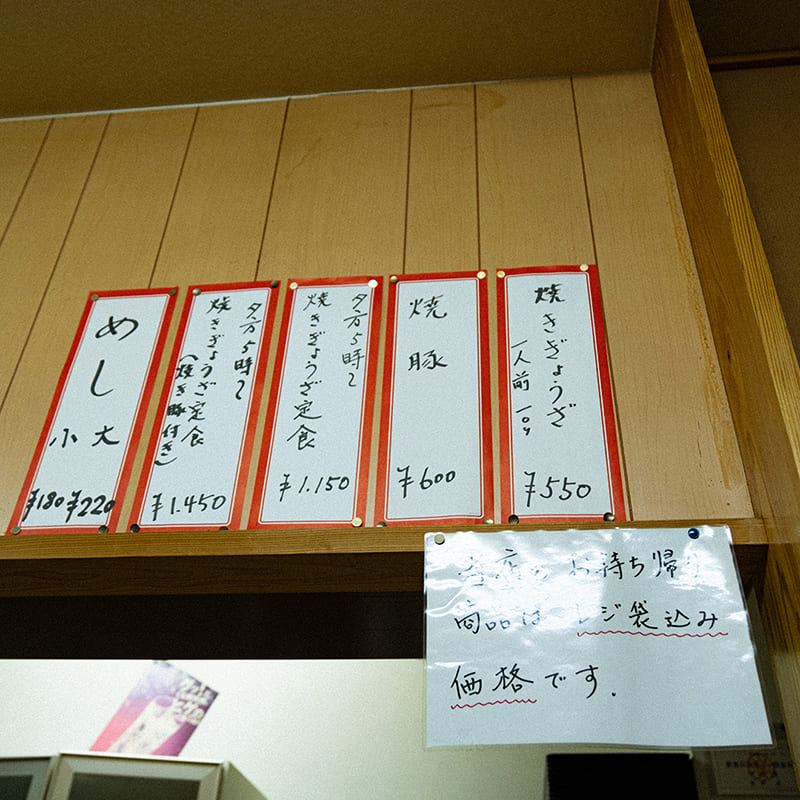 焼きぎょうざ
一人前 10ケ
¥550
焼豚
¥600
夕方5時〜
焼きぎょうざ定食
¥1.150
夕方5時〜
焼きぎょうざ定食
(焼き豚付き)
¥1.450
めし
大
¥220
小
¥180
当店のお待ち帰り
商品はレジ袋込み
価格です.